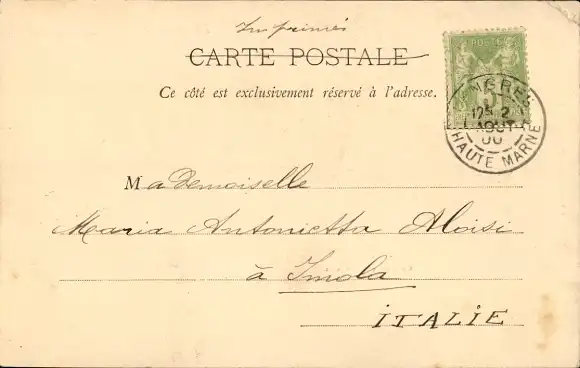 Imprimés
CARTE POSTALE
Ce côté est exclusivement réservé à l'adresse.
POSTE
12 2
AOUT
00
HAUTE MARNE
Mademoiselle
Maria Antonietta Aloisi
à Imola
ITALIE